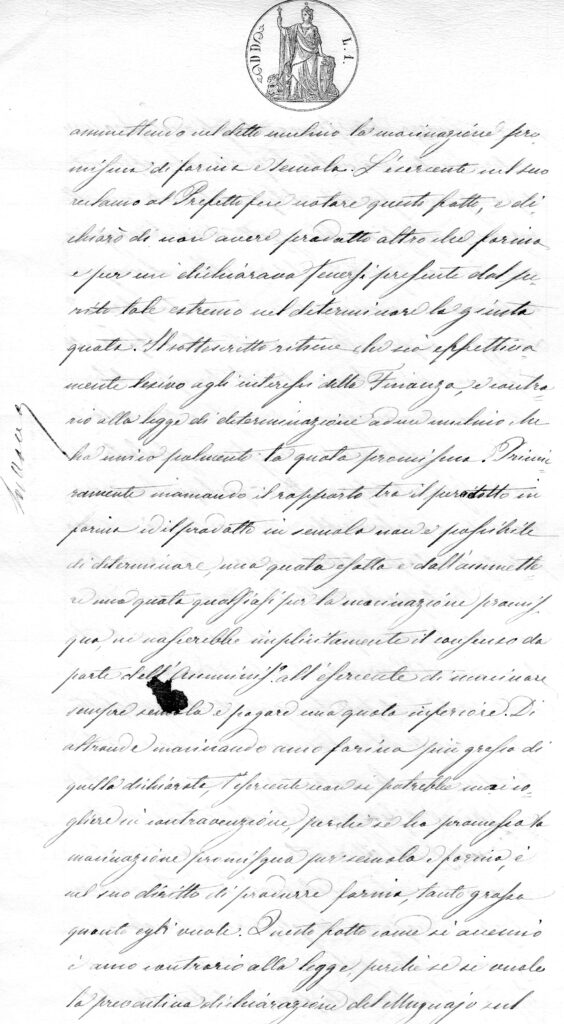 L. 1.
ammettendo nel detto mulino la macinazione pro-
missua di farina e semola. L'esercente nel suo
reclamo al Prefetto fece notare questo fatto, e di-
chiarò di non avere prodotto altro che farina
e per cui dichiarava tenersi presente dal pe-
rito tale estremo nel determinare la giusta
quota. Il sottoscritto ritiene che sia effettiva
mente lesivo agli interessi della Finanza, e contra-
rio alla legge di determinazione ad un mulino che
ha unico palmento la quota promissua. Primie
ramente mancando il rapporto tra il prodotto in
farina ed il prodotto in semola non è possibile
di determinare, una quota esatta e dall'ammette
re una quota qualsiasi per la macinazione promis-
qua, ne nascerebbe implicitamente il consenso da
parte dell'Amminis.e all'esercente di macinare
sempre semola e pagare una quota inferiore. Di
altronde macinando anco farina più grossa di
quella dichiarata l'esercente non si potrebbe mai co-
gliere in contravenzione, perché se ha promessa la
macinazione promisqua per semola e farina, è
nel suo diritto di produrre farina, tanto grossa
quanto egli vuole. Questo fatto come si accennò
è anco contrario alla legge, perché se si vuole
la preventiva dichiarazione del Mugnajo sul